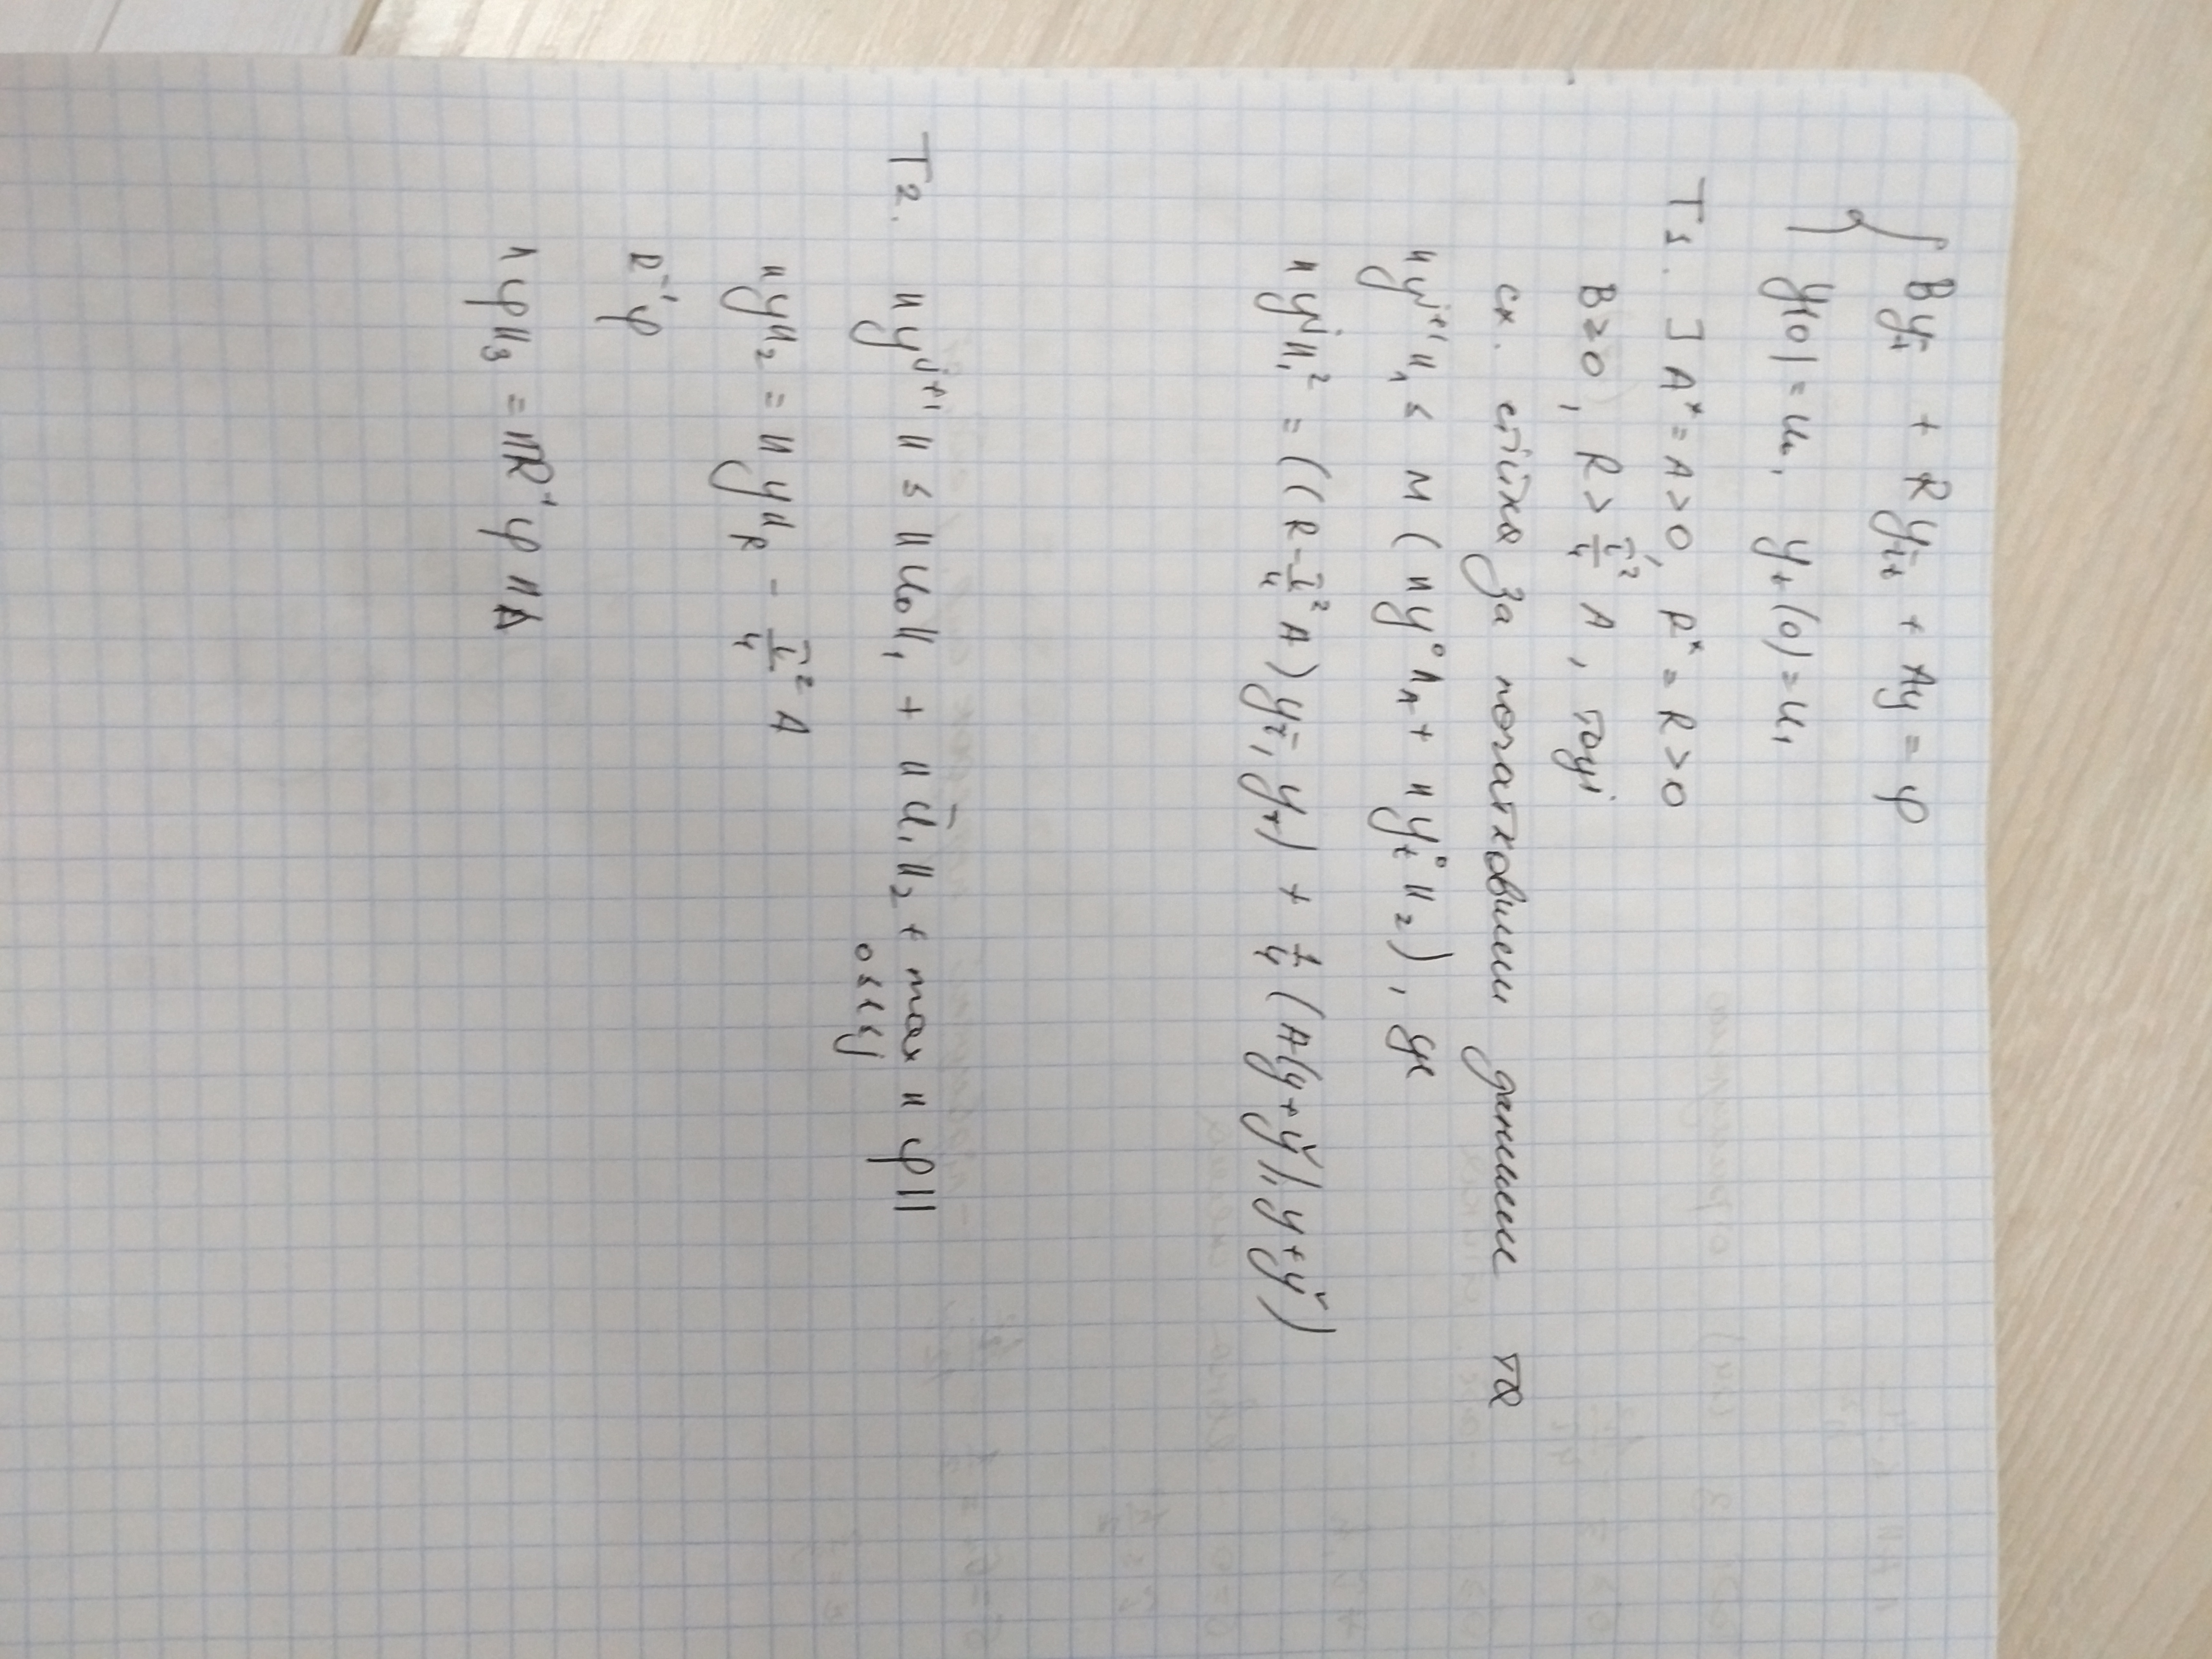 { B y_t° + R y_t̄t + Ay = φ
y(0) = u₀, y_t(0) = u₁
T1. ] A* = A > 0, R* = R > 0
B ≥ 0, R > τ²/4 A, тоді
сх. стійка за початковими даними та
||y^{j+1}||₁ ≤ M (||y⁰||_A + ||y_t⁰||₂), де
||y^j||₁² = ((R - τ²/4 A) y_t̄, y_t̄) + 1/4 (A(y + y̌), y + y̌)
T2. ||y^{j+1}|| ≤ ||u₀||₁ + ||ū₁||₂ + max ||φ||
0≤k≤j
||y||₂ = ||y||_R - τ²/4 A
R⁻¹φ
||φ||₃ = ||R⁻¹φ||_A